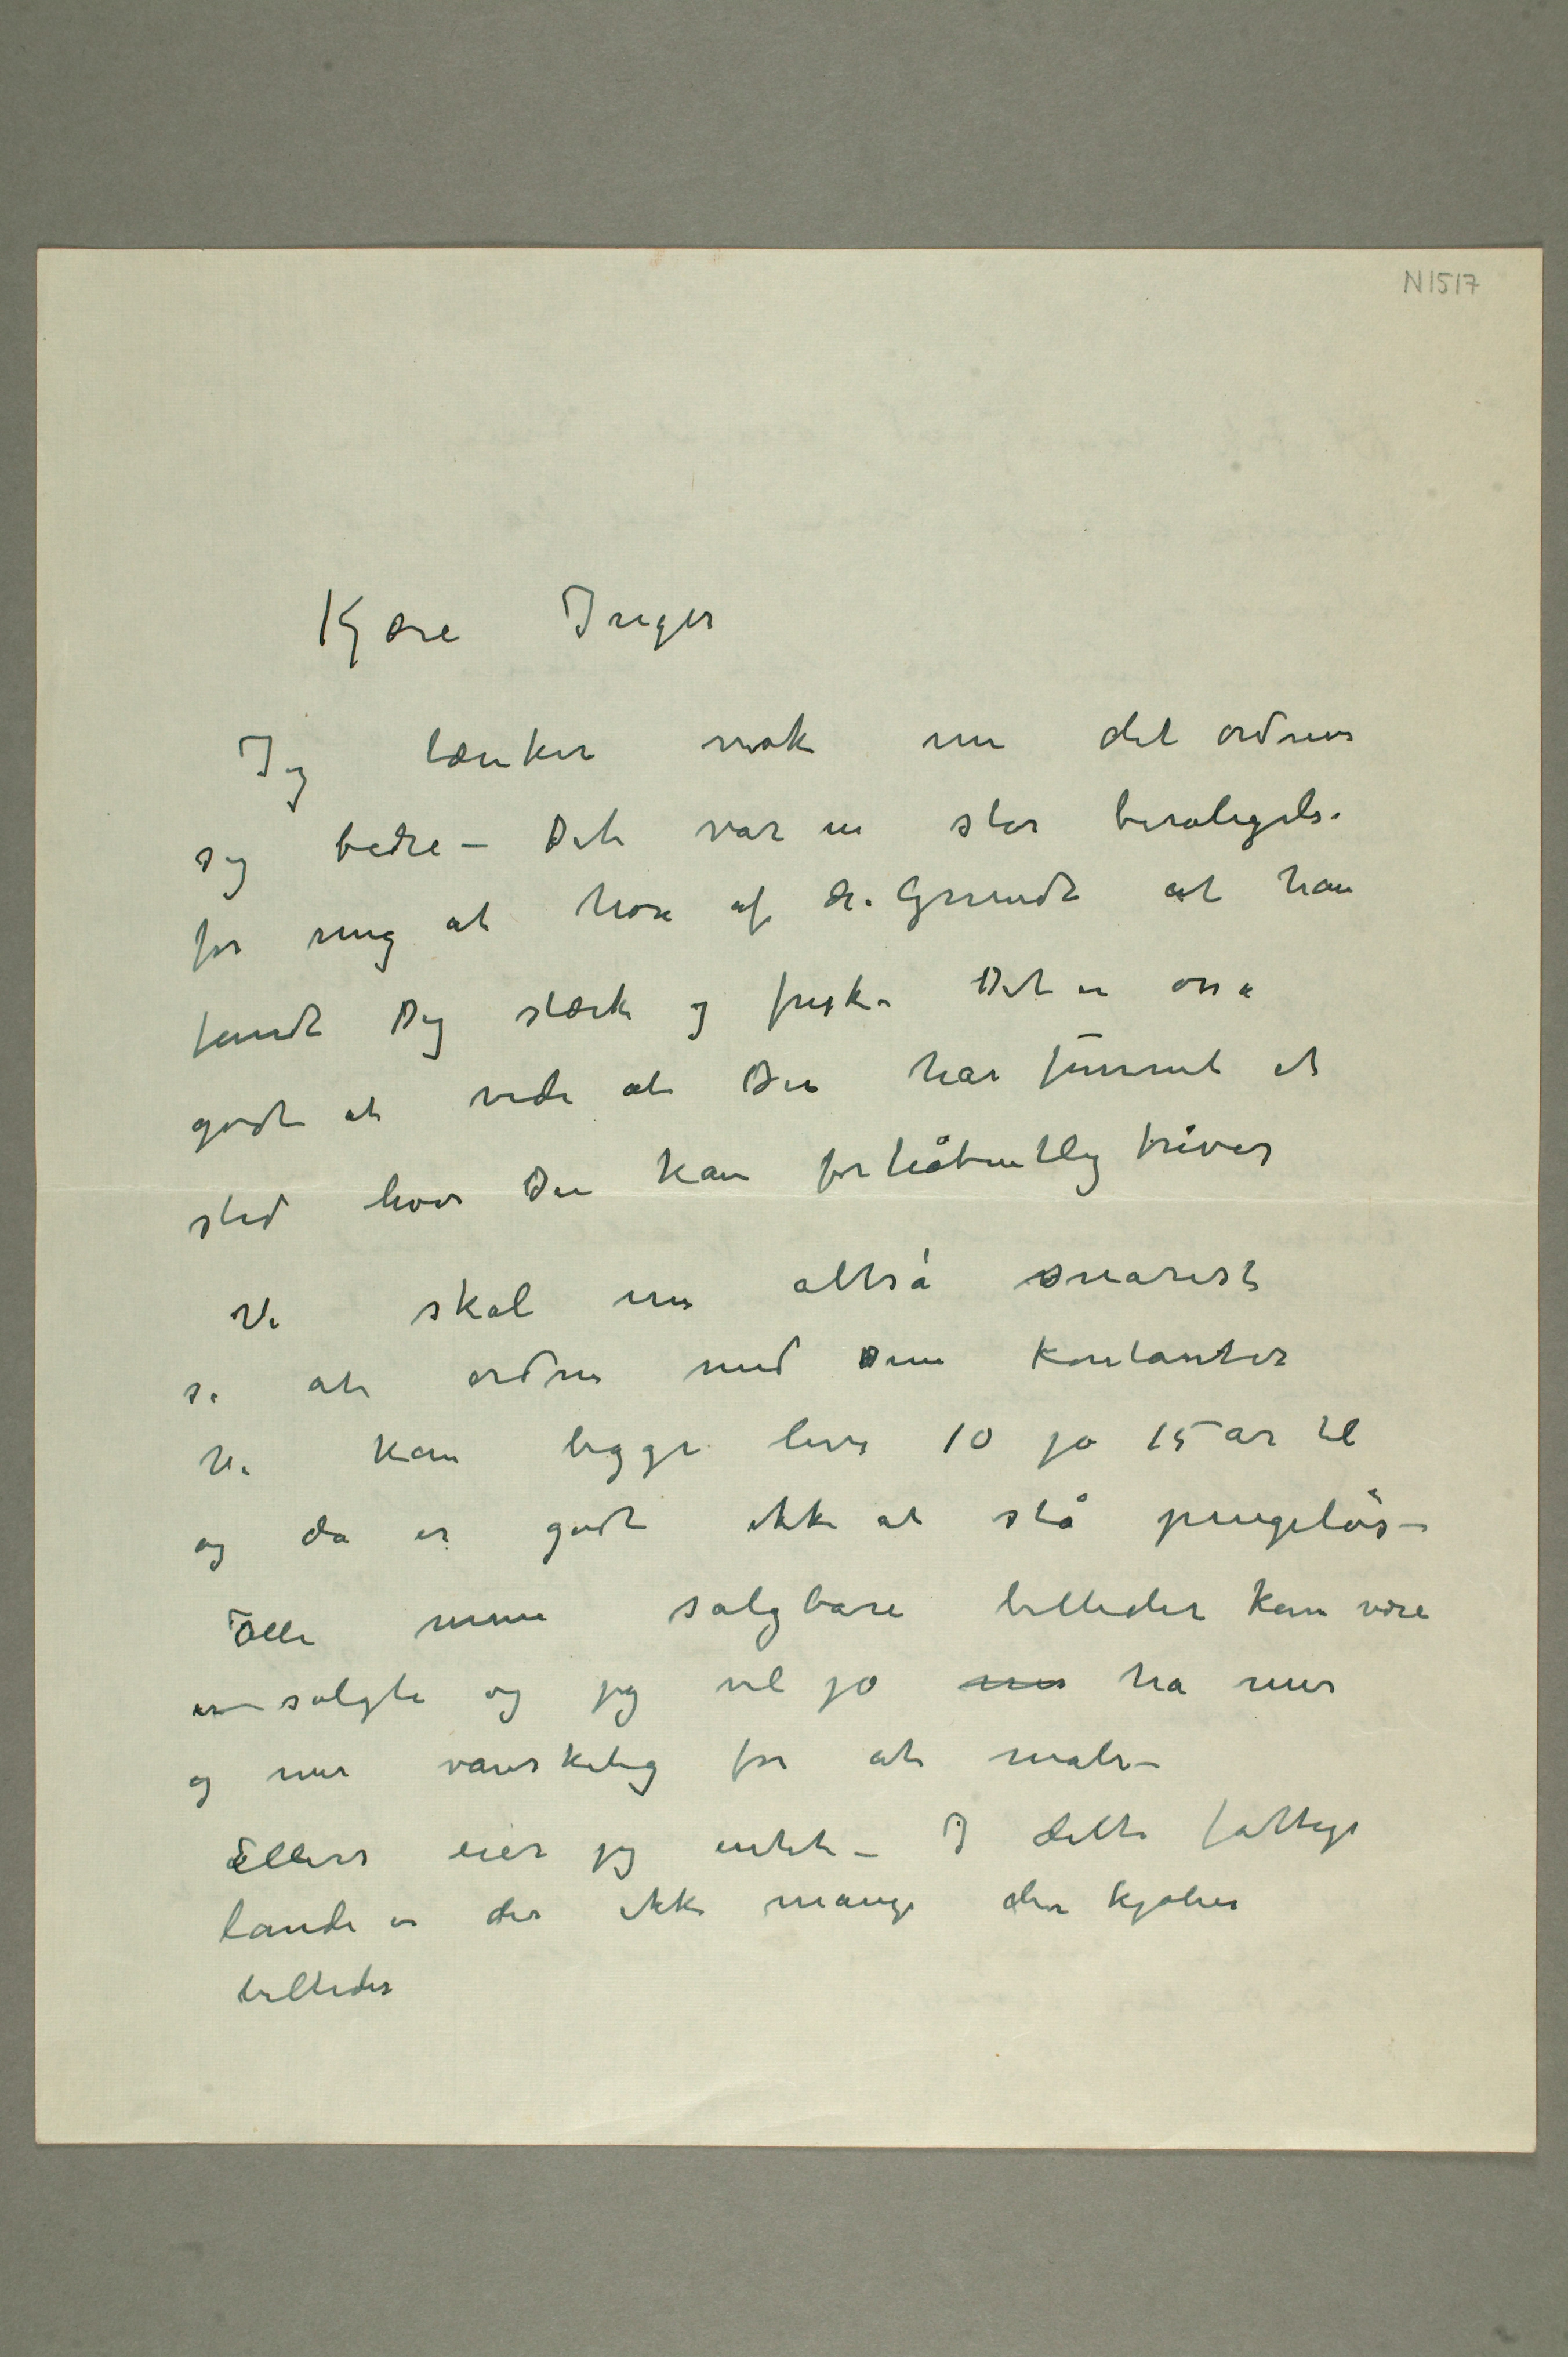 N1517
Kjære Inger
Jeg tænker nok nu det ordner
sig bedre – Det var en stor beroligelse
for mig at høre af dr. Grundt at han
fandt Dig stærk og frisk – Det er osså
godt at vide at Du har funnet et
sted hvor Du kan forhåbentlig trives
Vi skal nu altså snarest
se at ordne med Dine kontanter
Vi kan begge leve 10 ja 15 år til
og da er godt ikke at stå pengeløs –
Alle mine salgbare billeder kan være
solgte og jeg vil jo ha mer
og mer vanskelig for at male –
Ellers eier jeg intet – I dette fattige
lande er der ikke mange der kjøber
billeder